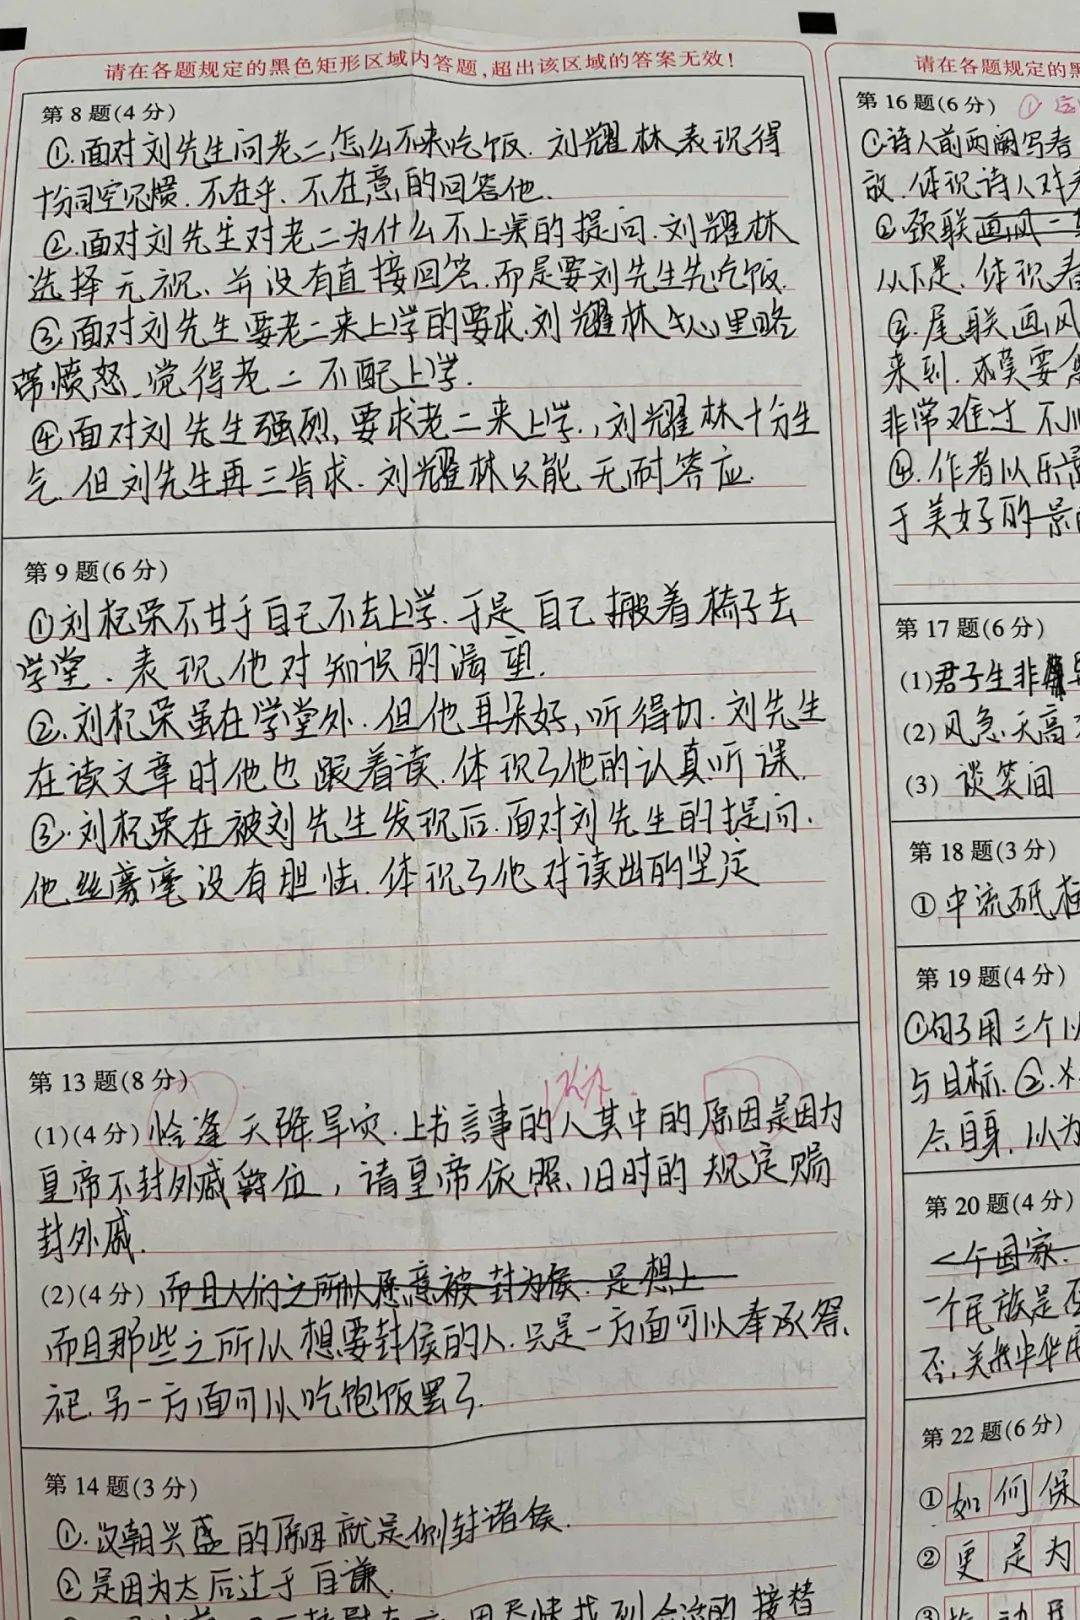 请在各题规定的黑色矩形区域内答题,超出该区域的答案无效!
第8题(4分)
①.面对刘先生问老二怎么不来吃饭.刘耀林表现得
十分司空见惯.不在乎.不在意的回答他.
②.面对刘先生对老二为什么不上桌的提问.刘耀林
选择无视、并没有直接回答.而是要刘先生先吃饭.
③.面对刘先生要老二来上学的要求.刘耀林心里略
带愤怒.觉得老二不配上学.
④面对刘先生强烈,要求老二来上学.,刘耀林十分生
气.但刘先生再三肯求.刘耀林只能无耐答应.
第9题(6分)
①刘杞荣不甘于自己不去上学.于是自己搬着梯子去
学堂.表现他对知识的渴望.
②.刘杞荣虽在学堂外.但他耳朵好,听得切.刘先生
在读文章时他也跟着读.体现了他的认真听课.
③.刘杞荣在被刘先生发现后.面对刘先生的提问.
他丝毫没有胆怯.体现了他对读出的坚定
第13题(8分)
(1)(4分)恰逢天降旱灾.上书言事的人其中的原因是因为
皇帝不封外戚爵位,请皇帝依照旧时的规定赐
封外戚.
(2)(4分)而且人们之所以愿意被封为侯.是想上
而且那些之所以想要封侯的人.只是一方面可以奉承祭
祀.另一方面可以吃饱饭罢了.
第14题(3分)
①.汉朝兴盛的原因就是侧封诸侯.
②是因为太后过于自谦.
请在各题规定的
第16题(6分)
①诗人前两阕写春
放.体现诗人对
②颈联画风一
从不是.体现春
③.尾联画风
来到.
非常难过
④.作者以乐
于美好的景
第17题(6分)
(1)君子生非
(2)风急天高
(3)谈笑间
第18题(3分)
①中流砥柱
第19题(4分)
①句子用三个以
与目标.②.
自身.以为
第20题(4分)
一个国家.
一个民族是否
否,关乎中华
第22题(6分)
①如何保
②更是为